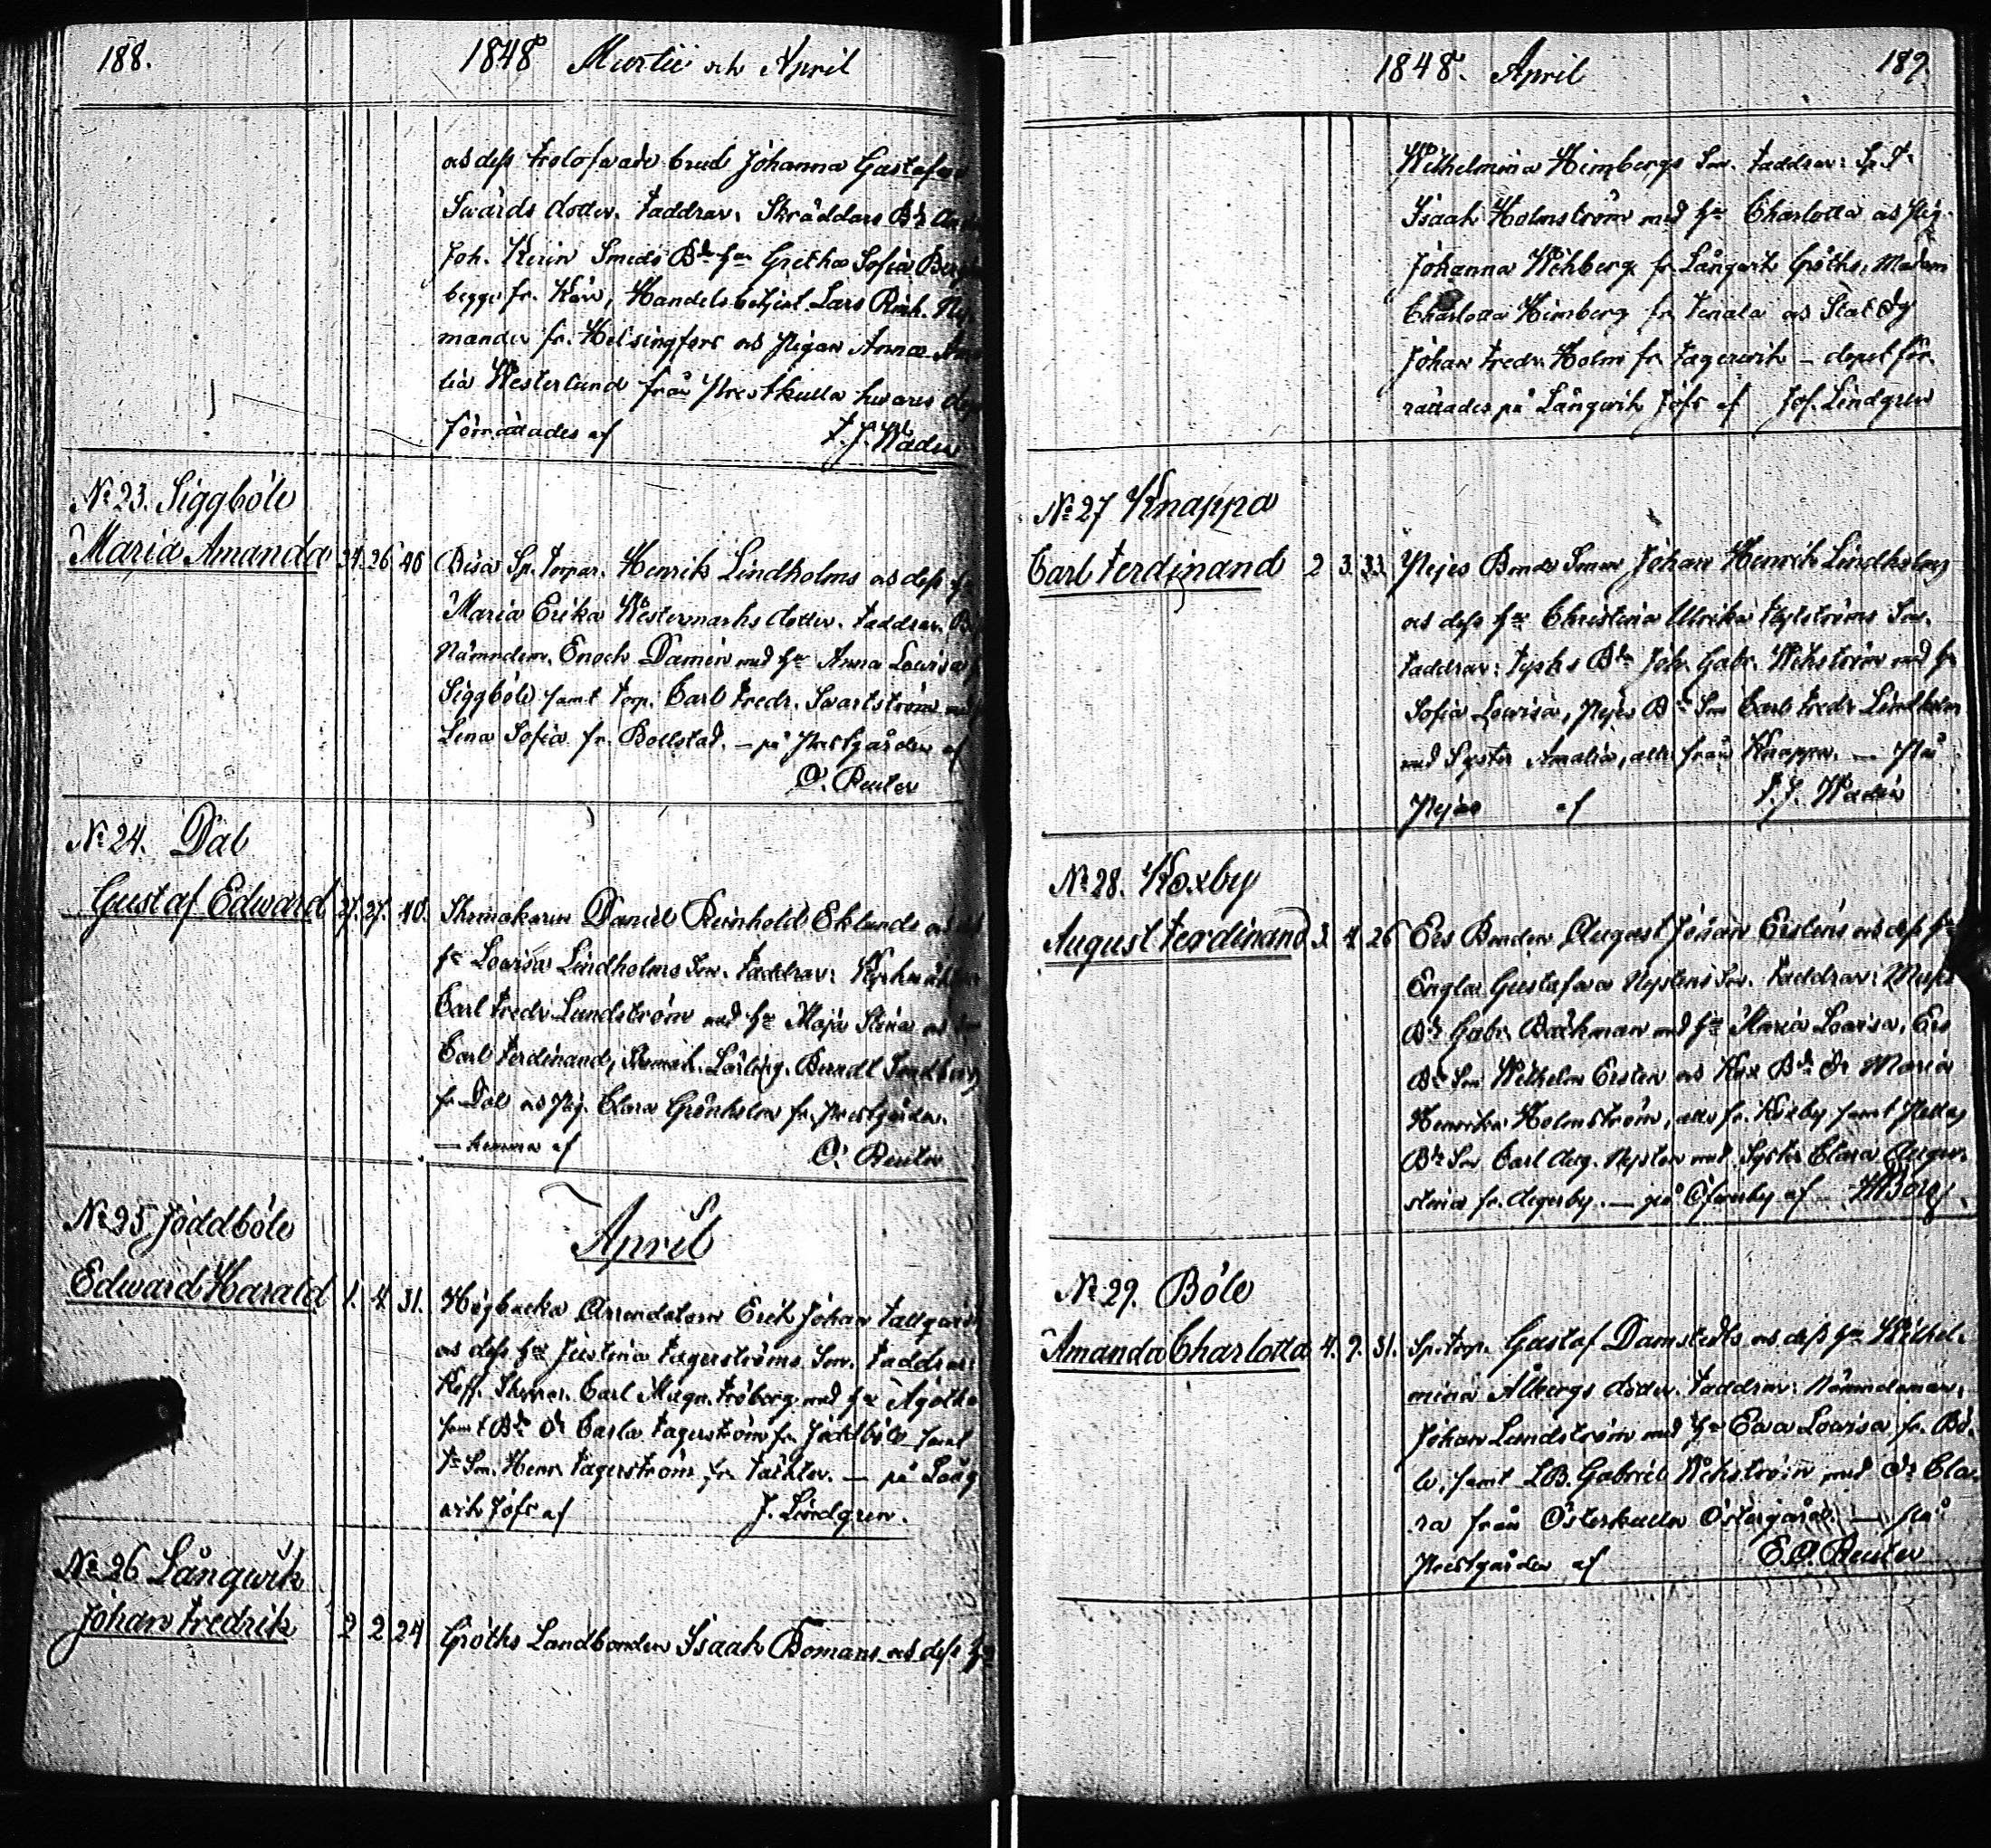 188.
1848 Martii och April
och dess trolofwade brud Johanna Gustafwa
Swärds dotter. Faddrar: Skräddars
Joh. Smeds Bd hu Gretha Sofia
begge fr. Handelsbetjent Lars Reinh.
mander fr. Helsingfors och Pigan Anna
lia Westerlund från Prestkulla hwars dop
förrättades af F. J. Wadén
No 23. Siggböle
Maria Amanda 24. 26. 40
Bisa Sp. torpar. Henrik Lindholms och dess
Maria Erika Westermarks dotter. Faddrar:
Nämndem. Enoch Damén med hu Anna Lowisa
Siggböle samt torp. Carl Fredr. Swartström med
Lena Sofia fr. Bollstad. — på Prestgården af
O. Reuter
No 24. Dal
Gustaf Edward 27. 27. 40.
Skomakaren Daniel Reinhold Eklunds och
hu Lowisa Lindholms Son. Faddrar: Kyrkwäkt
Carl Fredr Lundström med hu Maja Stina och
Carl Ferdinand, Skomak. Lärling. Berndt Sundberg
fr Dal och Pig. Clara Grönholm fr. Prestgården.
— hemma af O. Reuter
April
No 25 Joddböle
Edward Harald 1. 4. 31.
Högbacka Arrendatorn Erik Johan Tallqwists
och dess hu Justina Fagerströms Son. Faddrar:
Carl Magn. Fröberg med hu Agatha
samt Bd Dr Carla Fagerström fr. Joddböle samt
Son. Henr. Fagerström fr. — på Lång
wik Jofs af J. Lindgren.
No 26 Långwik
Johan Fredrik 2 2 24
Groths Landbonden Isaak Bomans och dess hu
1848. April 189.
Wilhelmina Heimbergs Son. Faddrar:
Isaak Holmström med hu Charlotta och Pig.
Johanna Wikberg fr. Långwik Groths, Madam
Charlotta Heimberg fr. Tenala och Stat Dg
Johan Fredr. Holm fr. Fagerwik — dopet för-
rättades på Långwik Jofs af Jos. Lindgren
No 27 Knappa
Carl Ferdinand 2 3. 33.
Nejes Bonde Sonen Johan Henrik Lindholms
och dess hu Christina Ulrika Flytströms Son.
Faddrar: Tysks Bdn Joh. Gabr. Wikström med hu
Sofia Lowisa, Nejes Bd Son Carl Fredr Lindholm
med Syster Amalia, alla från Knappa. — På
Nejes af F. J. Wadén
No 28. Koxby
August Ferdinand 3. 4. 26
Ers Bonden August Johan Erstens och dess hu
Engla Gustafwa Nystens Son. Faddrar:
Bd Gabr. Backman med hu Maria Lowisa, Ers
Bd Son Wilhelm Ersten och Kox Bd Dr Maria
Henrika Holmström, alla fr. Koxby samt
Bd Son Carl Aug. Nysten med Syster Clara Augu-
stina fr. Degerby. — på Öfwerby af
No 29. Böle
Amanda Charlotta 4. 9. 31.
Sp. torp. Gustaf Damstedts och dess hu Wilhel-
mina Ålbergs dotter. Faddrar: Nämndeman.
Johan Lundström med hu Ewa Lowisa fr. Bö-
le, samt LB. Gabriel Wikström med Dr Cla-
ra från Österkulla Östergård. — På
Prestgården af E. O. Reuter